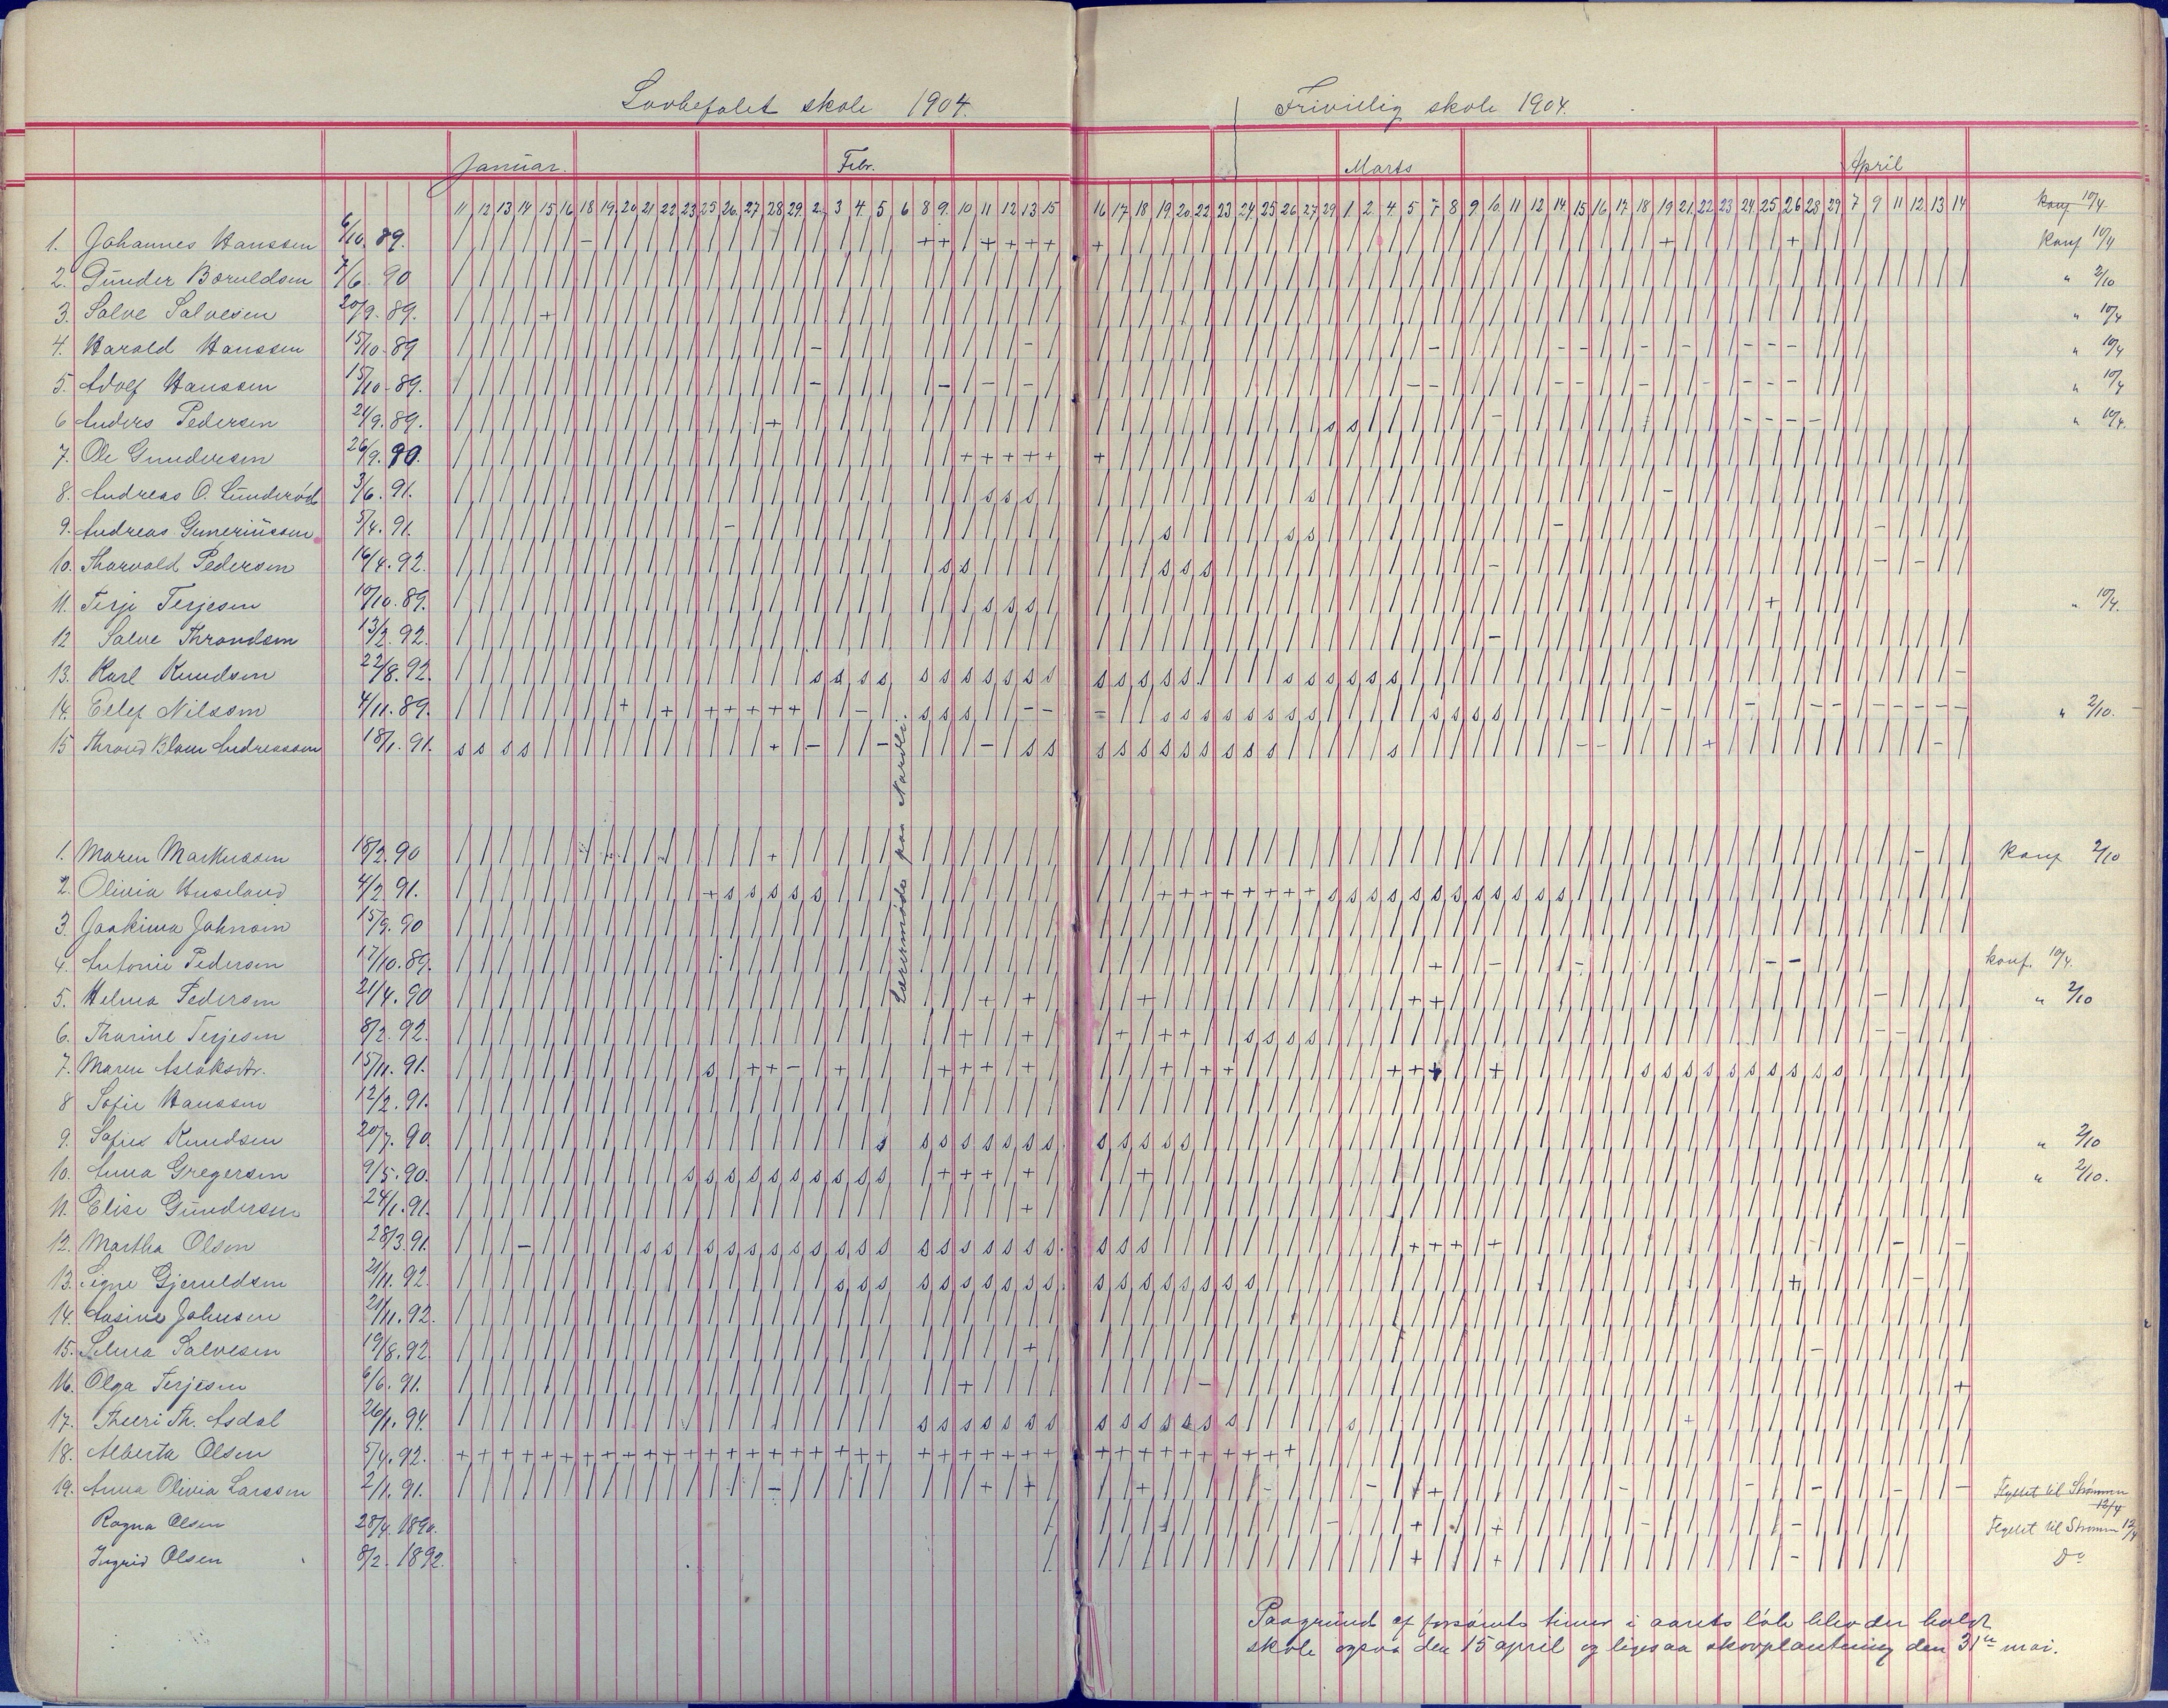 Lovbefalet skole 1904.
Frivillig skole 1904.
Januar. Febr. Marts April
11 12 13 14 15 16 18 19 20 21 22 23 25 26 27 28 29 2 3 4 5 6 8 9 10 11 12 13 15 16 17 18 19 20 22 23 24 25 26 27 29 1 2 4 5 7 8 9 10 11 12 14 15 16 17 18 19 21 22 23 24 25 26 28 29 7 9 11 12 13 14 konf 10/4
1. Johannes Hanssen 6/10. 89. konf 10/4
2. Gunder Bæruldsen 7/6. 90 " 2/10
3. Salve Salvesen 20/9. 89. " 10/4
4. Harald Hanssen 15/10. 89 " 10/4
5. Adolf Hanssen 15/10. 89. " 10/4
6 Anders Pedersen 24/9. 89. " 10/4.
7. Ole Gundersen 26/9. 90.
8. Andreas O. Sunderöd 3/6. 91.
9. Andreas Guneriussen 5/4. 91.
10. Tharvald Pedersen 16/4. 92.
11. Terje Terjesen 10/10. 89. " 10/4.
12 Salve Throndsen 13/2. 92.
13. Karl Knudsen 22/8. 92.
14. Eilef Nilssen 4/11. 89. " 2/10.
15 Thrond Blom Andreassen 18/1. 91.
Lærermöde paa Narvli.
1. Maren Markussen 18/2. 90 konf 2/10
2. Olivia Huseland 4/2. 91.
3. Joakima Johnsen 15/9. 90
4. Antonie Pedersen 17/10. 89. konf. 10/4.
5. Helma Pedersen 21/4. 90 " 2/10
6. Tharine Terjesen 8/2. 92.
7. Maren Aslaksdtr. 15/11. 91.
8 Sofie Hanssen 12/2. 91.
9. Sofie Knudsen 20/7. 90. " 2/10
10. Anna Gregersen 9/5. 90. " 2/10.
11. Elise Gundersen 24/1. 91.
12. Martha Olsen 28/3. 91.
13. Signe Gjeruldsen 21/11. 92.
14. Aasine Johnsen 21/11. 92.
15. Selma Salvesen 19/8. 92
16. Olga Terjesen 6/6. 91.
17. Th. Asdal 26/1. 94.
18. Alberta Olsen 5/4. 92.
19. Anna Olivia Larssen 2/1. 91. Flyttet til Strømmen 12/4
Ragna Olsen 28/4. 1890. Flyttet til Strømmen 12/4
Ingrid Olsen 8/2. 1892. Do
Paagrund af forsömte timer i aarets löb blev der holdt
skole ogsaa den 15 april og ligesaa skovplantning den 31te mai.